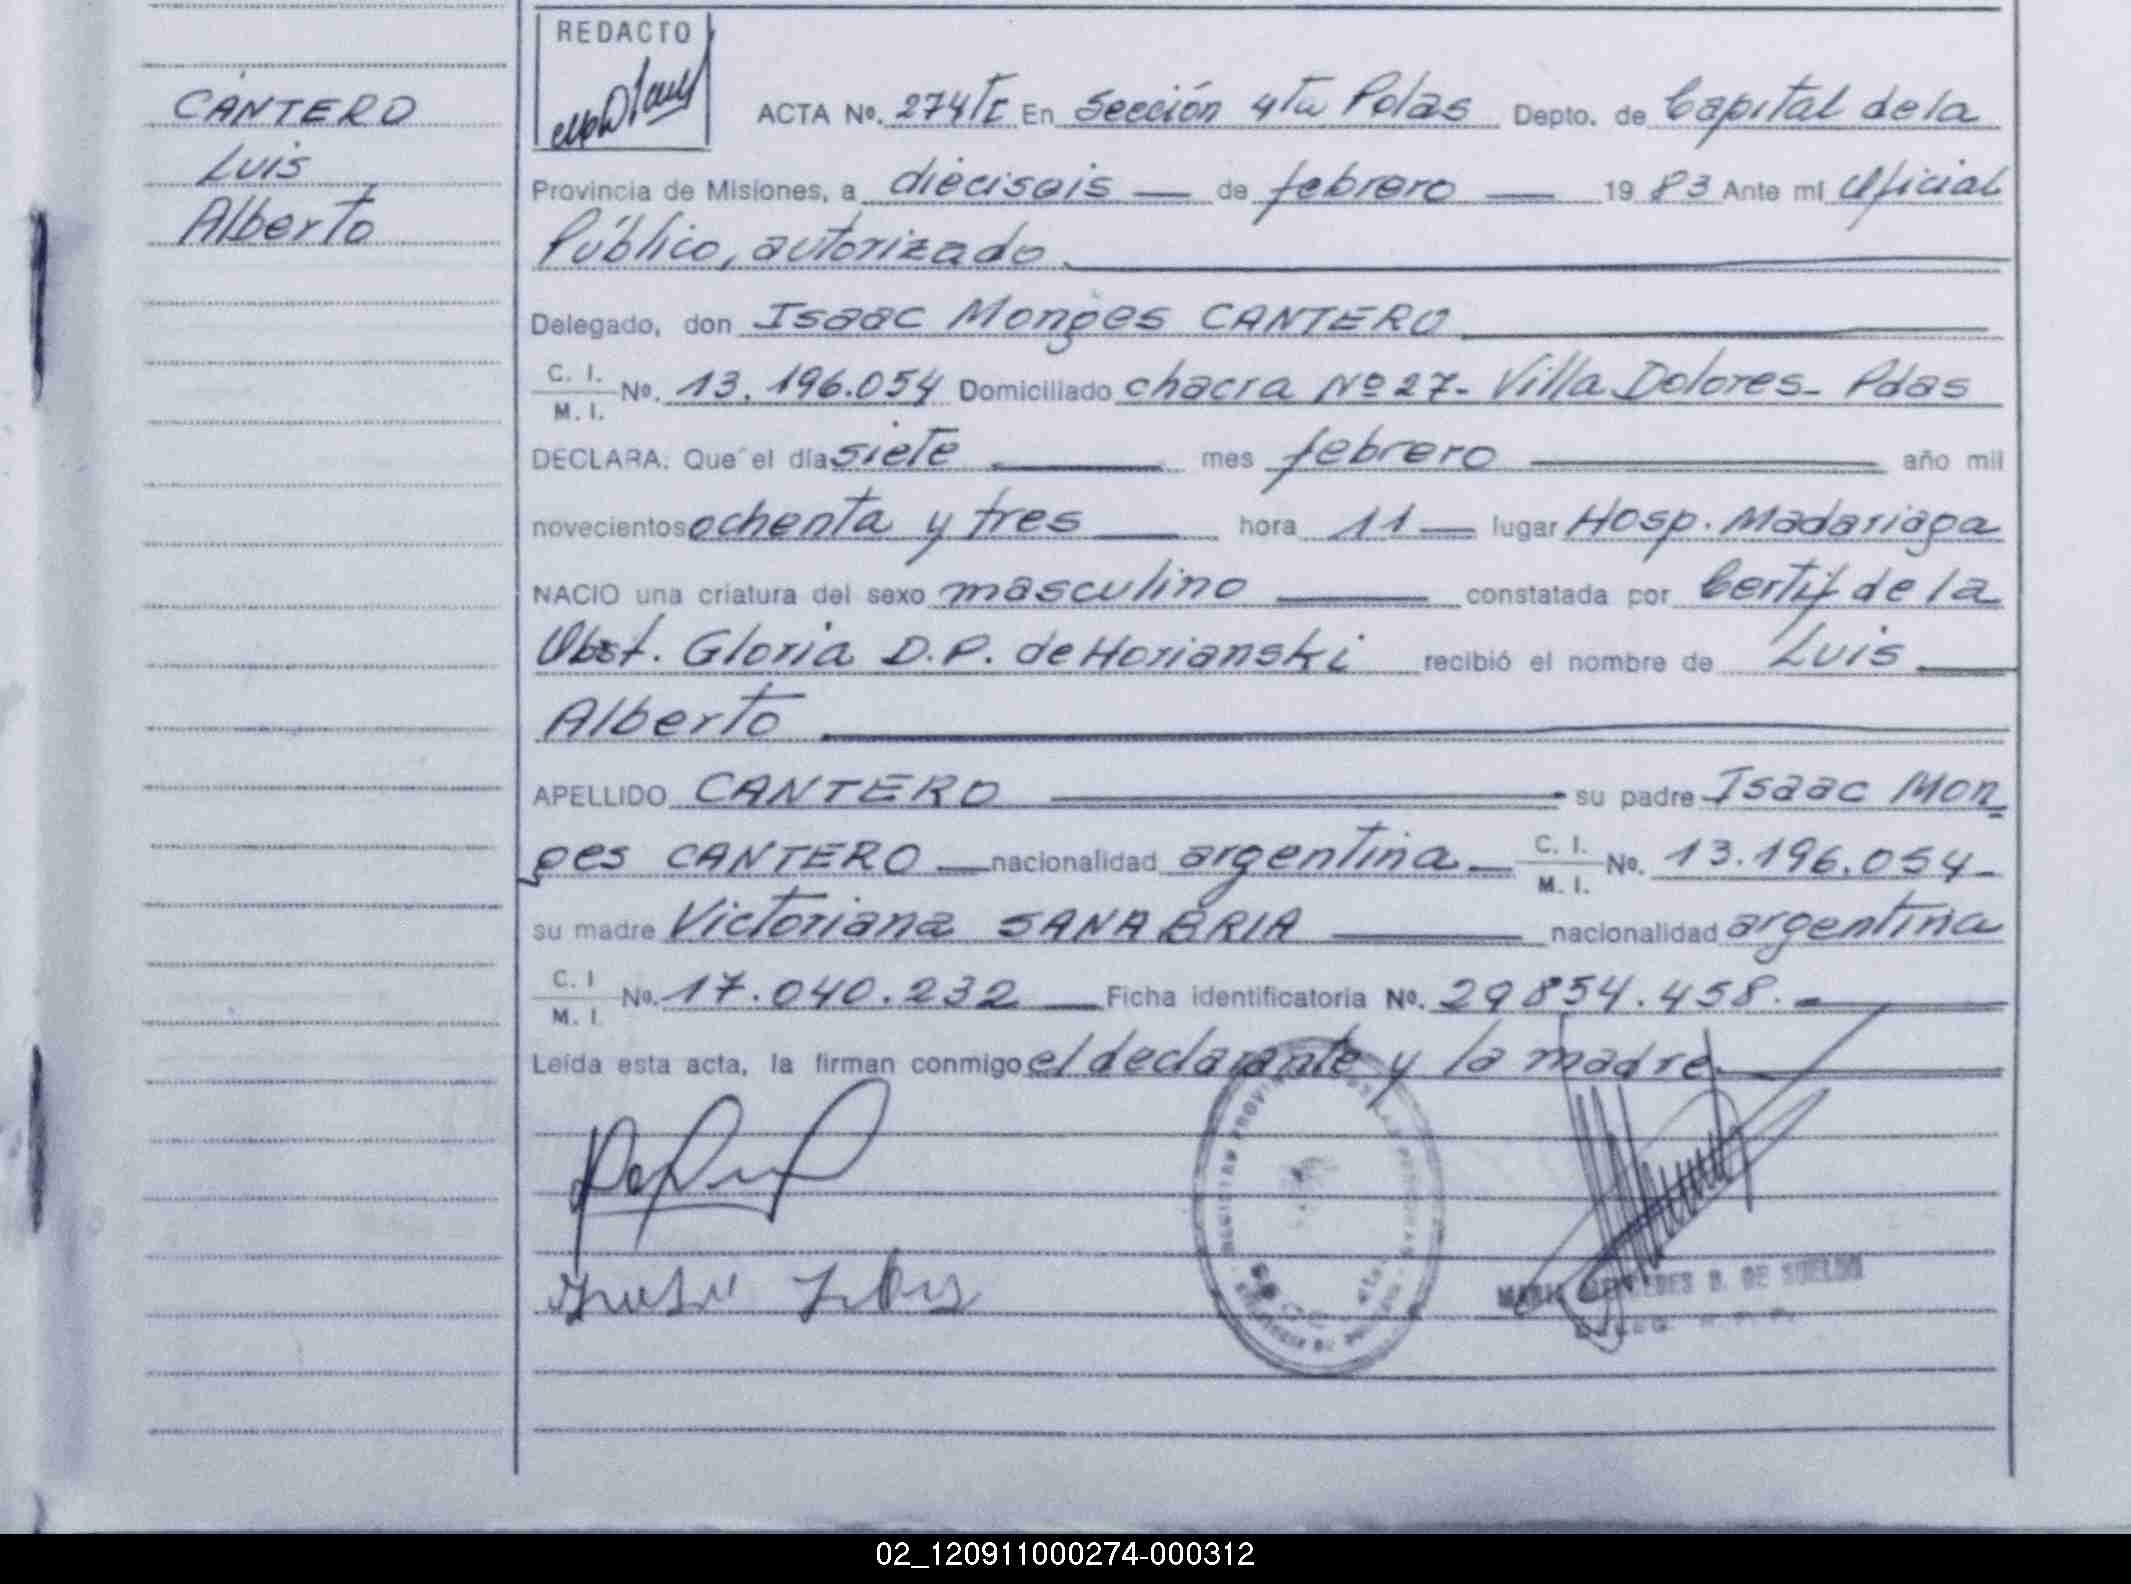 REDACTO
CANTERO
Luis
Alberto
ACTA No. 274/TI En Sección 4ta Pdas Depto. de Capital de la
Provincia de Misiones, a dieciseis — de febrero — 1983 Ante mí Oficial
Público, autorizado
Delegado, don Isaac Monges CANTERO
C. I. M. I. No. 13.196.054 Domiciliado chacra Nº 27- Villa Dolores- Pdas
DECLARA: Que el día siete — mes febrero — año mil
novecientos ochenta y tres — hora 11 — lugar Hosp. Madariaga
NACIO una criatura del sexo masculino — constatada por Certif de la
Obst. Gloria D.P. de Horianski recibió el nombre de Luis —
Alberto —
APELLIDO CANTERO — su padre Isaac Mon
ges CANTERO — nacionalidad argentina — C. I. M. I. No. 13.196.054 -
su madre Victoriana SANABRIA — nacionalidad argentina
C. I M. I. No. 17.040.232 — Ficha identificatoria No. 29854.458. —
Leída esta acta, la firman conmigo el declarante y la madre
DE SUELDO
02_120911000274-000312